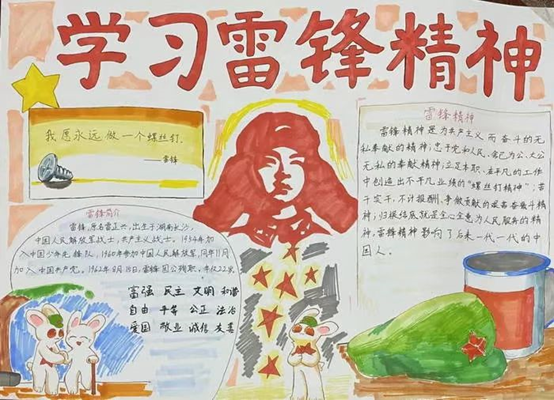 学习雷锋精神
我愿永远做一个螺丝钉.
——雷锋
雷锋简介
雷锋,原名雷正兴,出生于湖南长沙,
中国人民解放军战士,共产主义战士。1954年加
入中国少年先锋队,1960年参加中国人民解放军,同年11月
加入中国共产党。1962年8月15日,雷锋因公殉职,年仅22岁
富强 民主 文明 和谐
自由 平等 公正 法治
爱国 敬业 诚信 友善
雷锋精神
雷锋精神是为共产主义而奋斗的无
私奉献的精神;忠于党和人民、舍己为公、大公
无私的奉献精神;立足本职、在平凡的工作
中创造出不平凡业绩的“螺丝钉精神”;苦
干实干、不计报酬、争做贡献的艰苦奋斗精
神;归根结底就是全心全意为人民服务的精
神,雷锋精神影响了后来一代一代的中
国人。